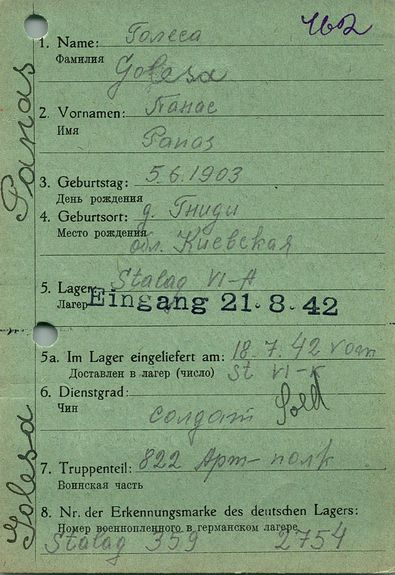 462
1. Name: Голеса
Фамилия
Golesa
2. Vornamen: Панас
Имя
Panas
3. Geburtstag: 5.6.1903
День рождения
4. Geburtsort: д. Гниди
Место рождения
обл. Киевская
5. Lager: Stalag VI-A
Лагер
Eingang 21.8.42
5a. Im Lager eingeliefert am: 18.7.42 vom
Доставлен в лагер (число) St VI-K
6. Dienstgrad: Sold
Чин
солдат
7. Truppenteil: 822 Арт-полк
Воинская часть
8. Nr. der Erkennungsmarke des deutschen Lagers:
Номер военнопленного в германском лагере
Stalag 359 2754
Panas
Golesa